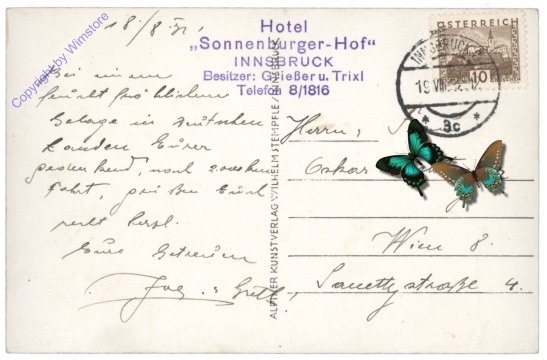 18./8.31.
Hotel
„Sonnenburger-Hof“
INNSBRUCK
Besitzer: Grießer u. Trixl
Telefon 8/1816
ÖSTERREICH
10
INNSBRUCK
19.VIII
* 3c *
Copyright by Wimstore
Bei einem
feucht fröhlichen
Gelage in
Landen Eurer
gedenkend, nach
Fahrt, grüßen Euch
recht herzl.
Eure Getreuen
ALPINER KUNSTVERLAG WILHELM STEMPFLE / INNSBRUCK
Herrn
Oskar
Wien 8.
straße 4.